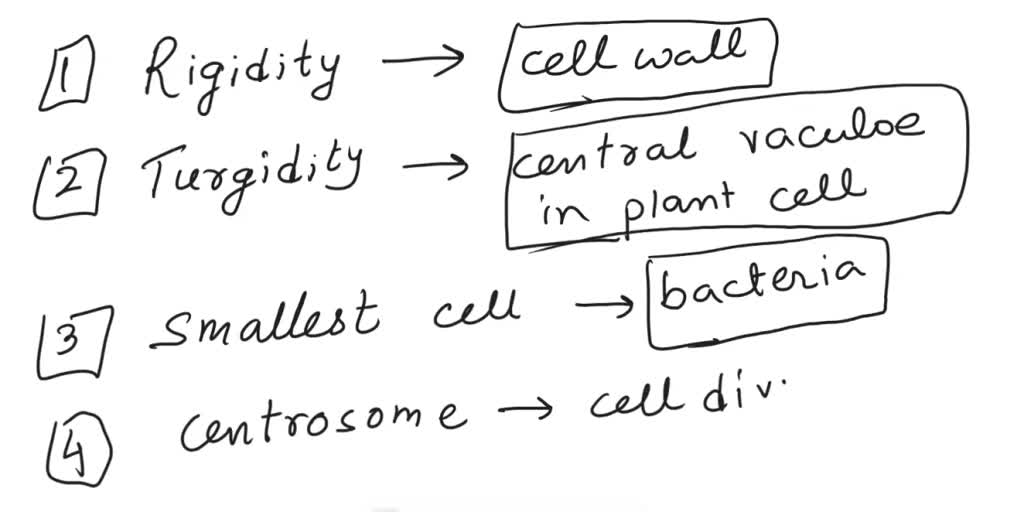 1 Rigidity → cell wall
2 Turgidity → central vaculoe
in plant cell
3 Smallest cell → bacteria
4 Centrosome → cell div.